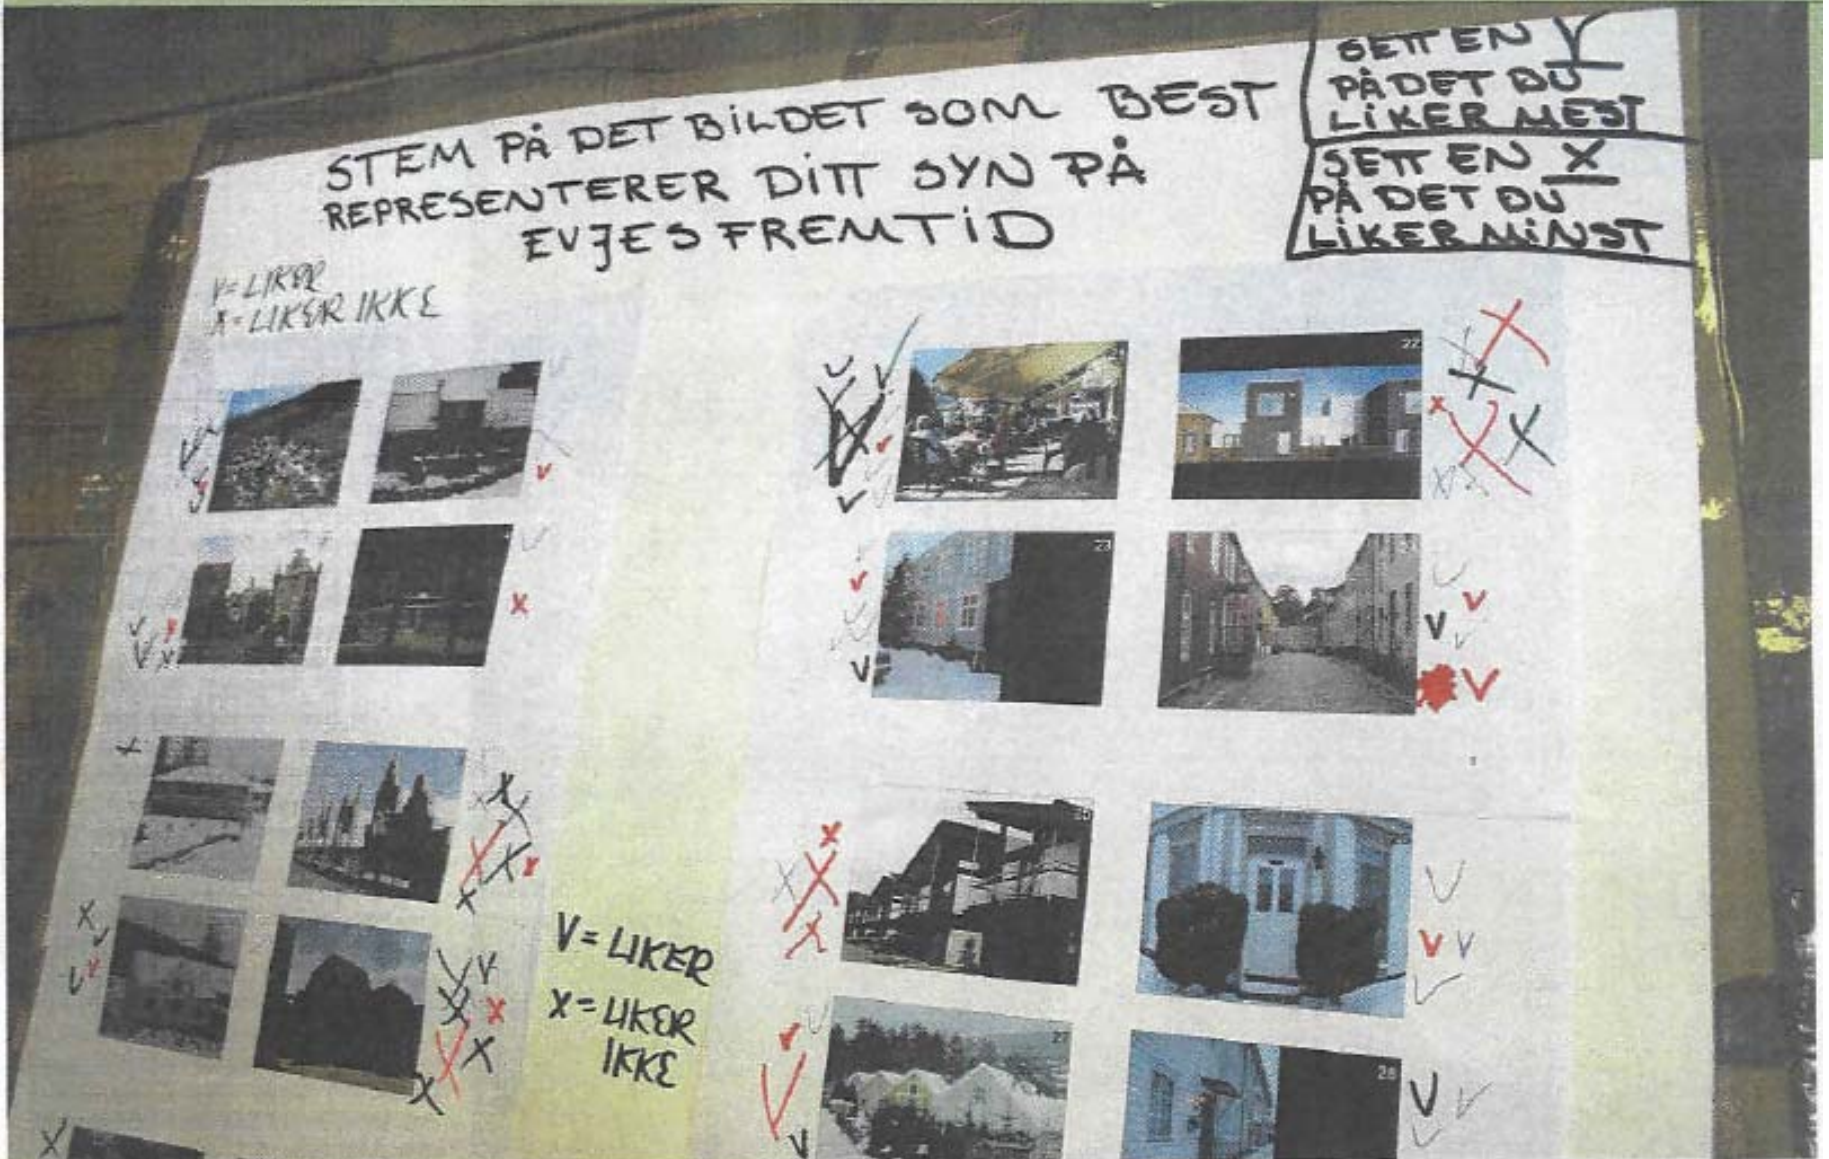 STEM PÅ DET BILDET SOM BEST
REPRESENTERER DITT SYN PÅ
EVJES FREMTID
SETT EN V
PÅ DET DU
LIKER MEST
SETT EN X
PÅ DET DU
LIKER MINST
V=LIKER
X=LIKER IKKE
22
23
25
27
28
V=LIKER
X=LIKER
IKKE